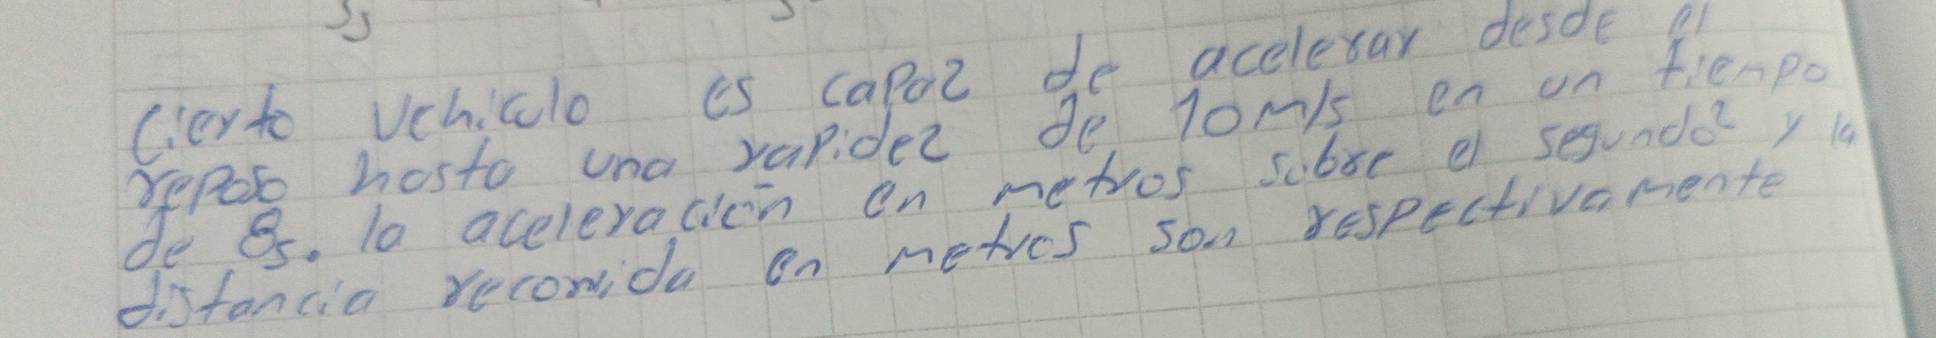 Cierto vehiculo es capaz de acelerar desde el
reposo hasta una rapidez de 10 m/s en un tiempo
de 8s. la aceleración en metros sobre el segundo² y la
distancia recorrida en metros son respectivamente